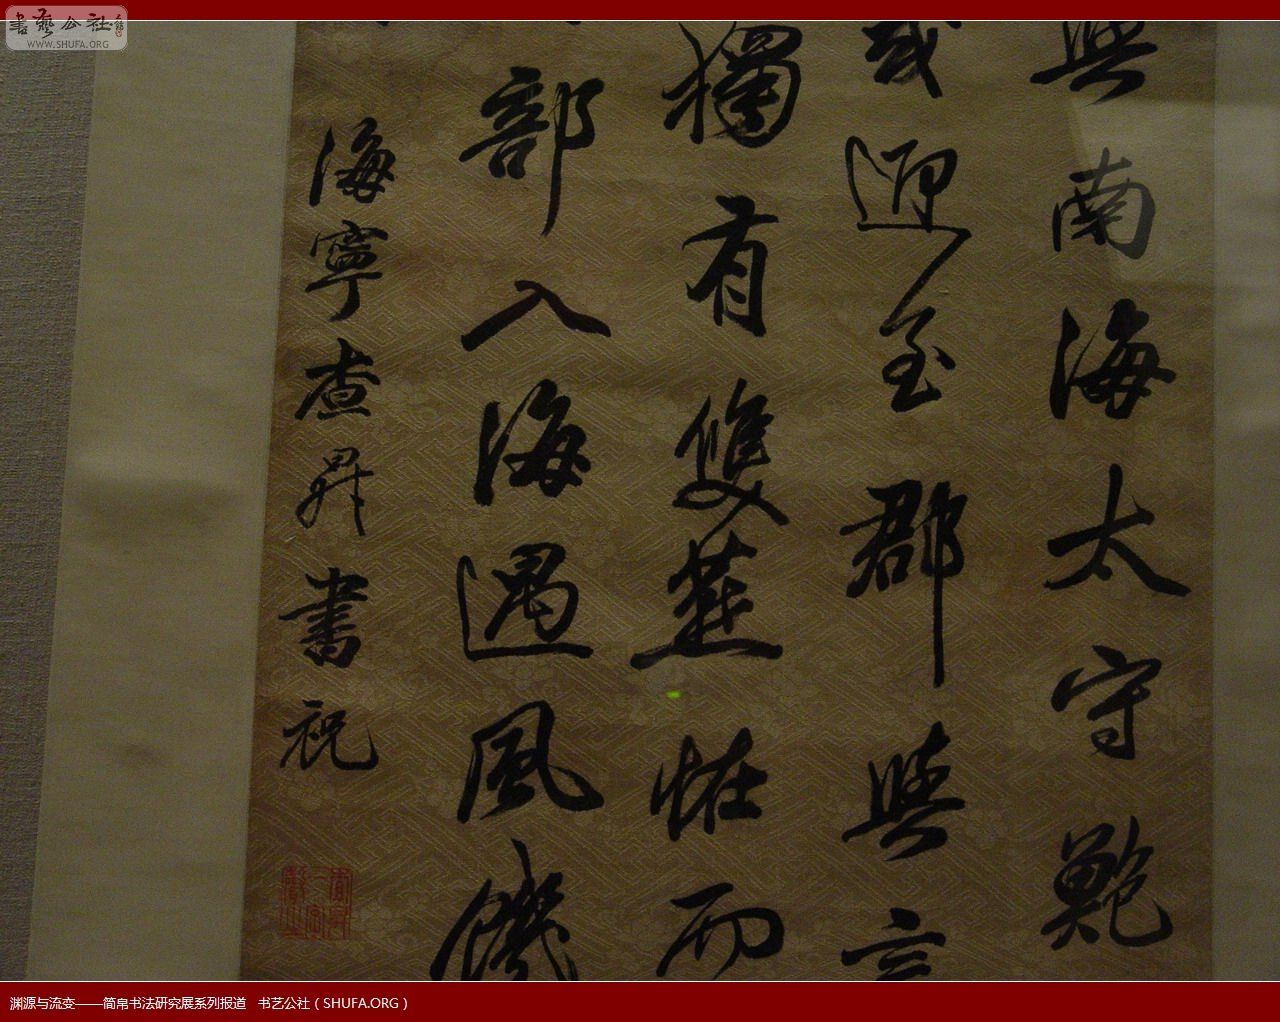 書藝公社
WWW.SHUFA.ORG
與南海太守鮑
或迎至郡與言
獨有雙燕恠而
部入海遇風饑
海寧查昇書祝
渊源与流变——简帛书法研究展系列报道 书艺公社（SHUFA.ORG）